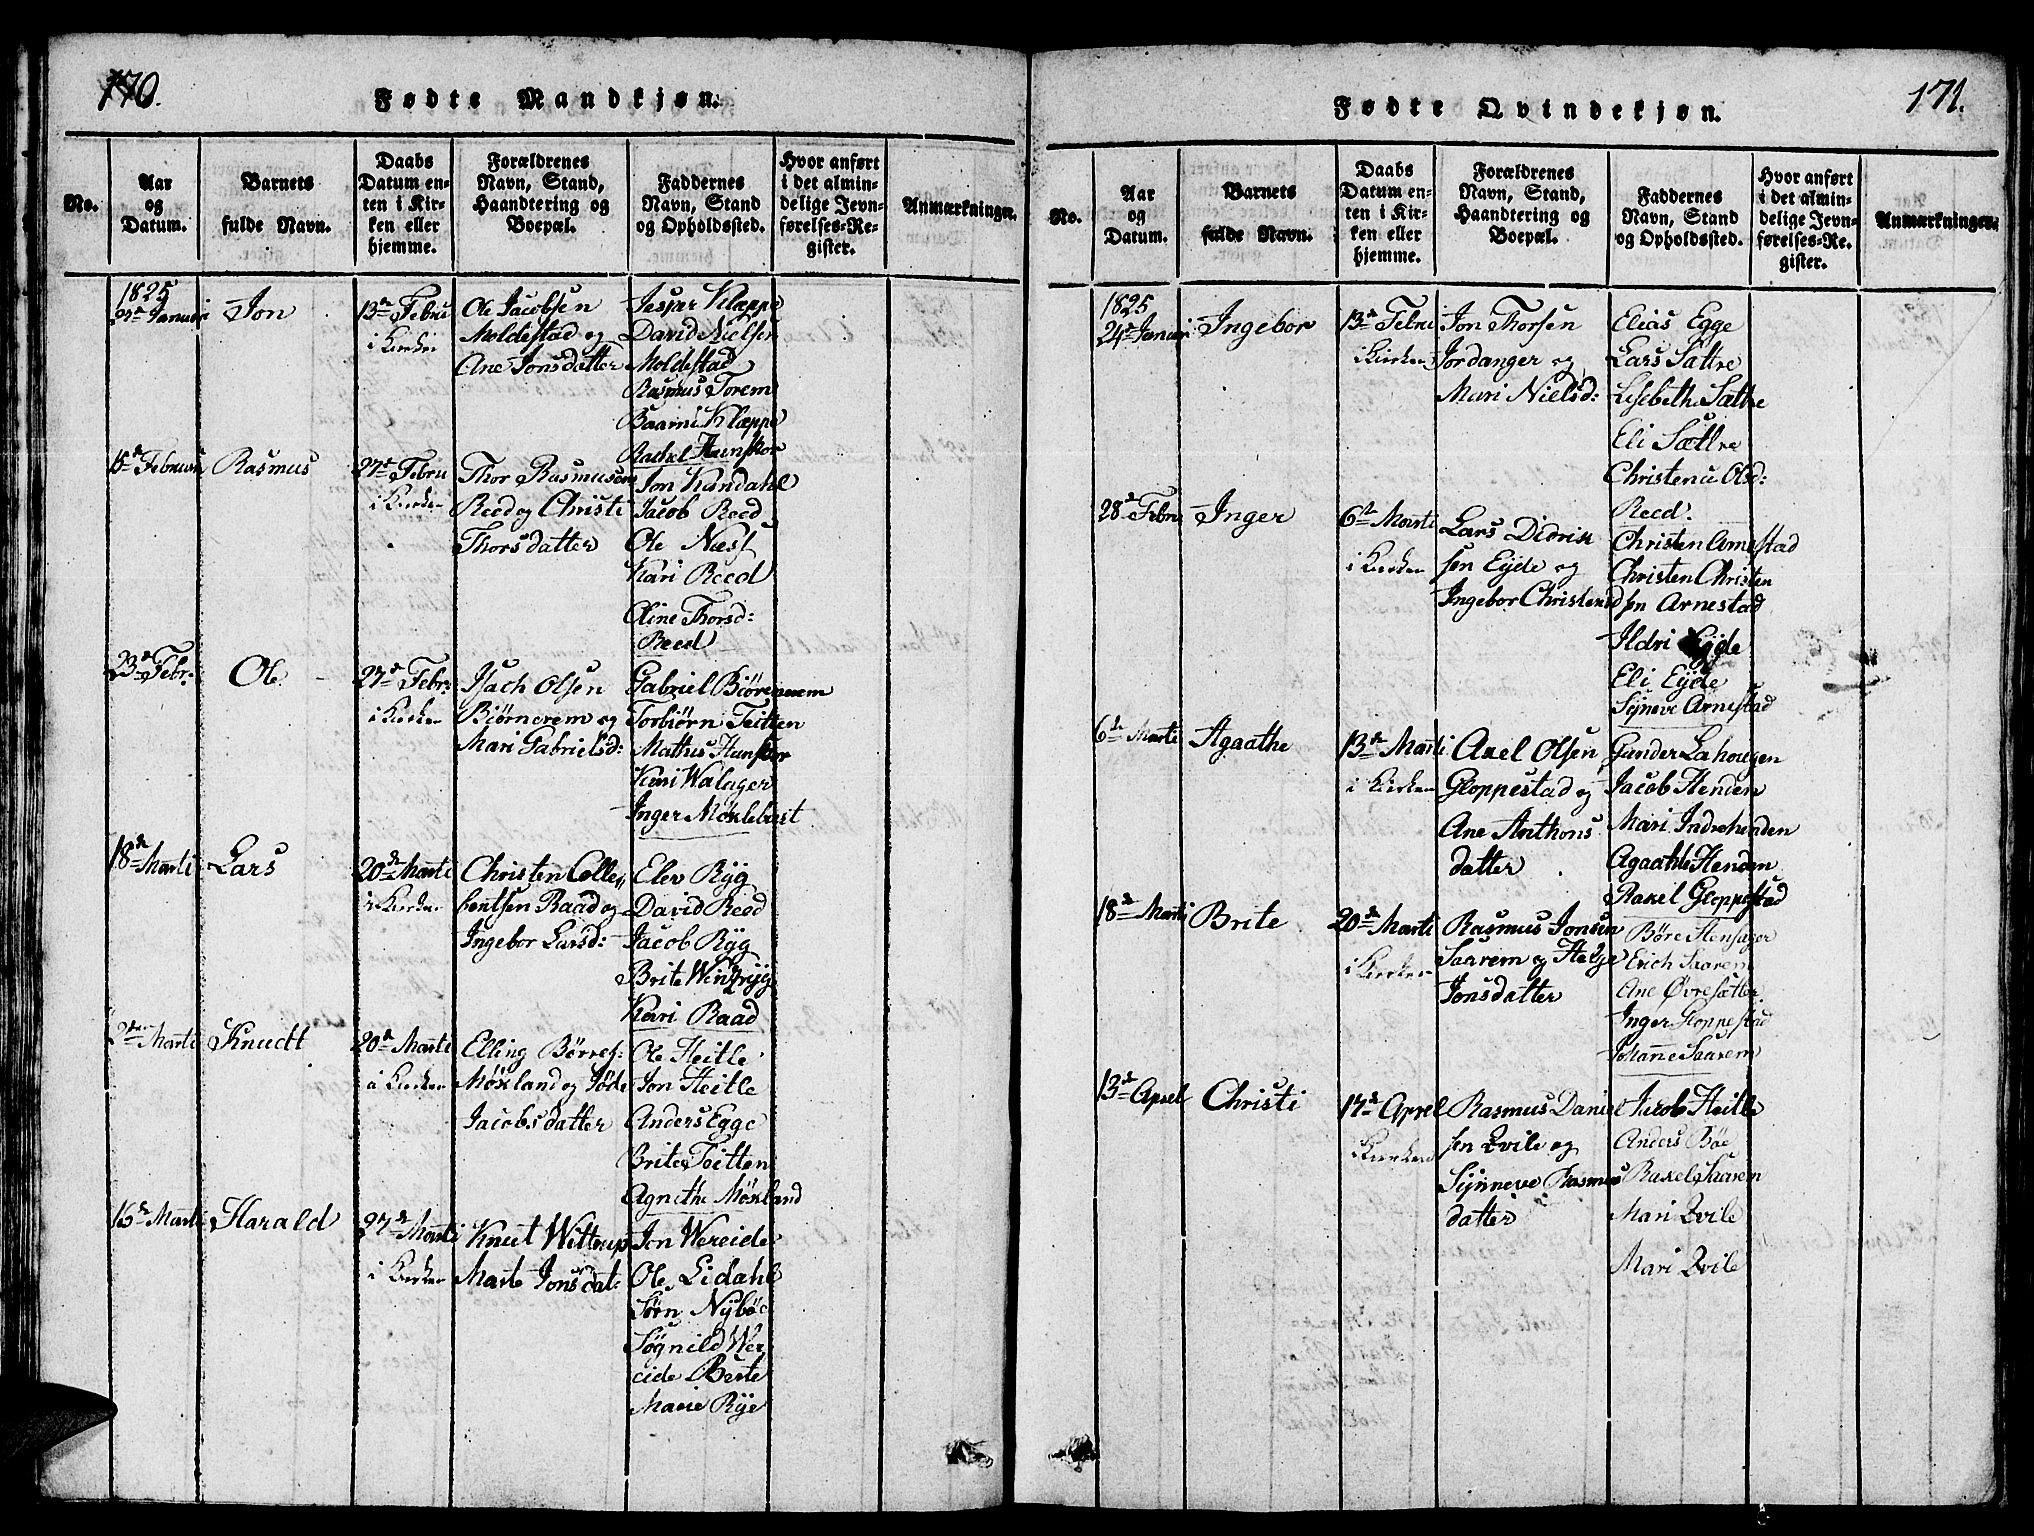 170.
Fødte Mandkjøn.
No.
Aar
og
Datum.
Barnets
fulde Navn.
Daabs
Datum en-
ten i Kir-
ken eller
hjemme.
Forældrenes
Navn, Stand,
Haandtering og
Boepæl.
Faddernes
Navn, Stand
og Opholdssted.
Hvor anført
i det almin-
delige Jevn-
førelses-Re-
gister.
Anmærkninger.
1825
Januari
Jon
13de Febru
i Kirken
Ole Jacobsen
Moldestad og
Ane Jonsdatter
Jespar Klæppe
David Nielsen
Moldestad
Rasmus Torem
Baarni Klæppe
Rachel Hunskor
15de Februari
Rasmus
27de Febru
i Kirken
Thor Rasmusen
Reed og Christi
Thorsdatter
Jon Kandahl
Jacob Reed
Ole Næst
Kari Reed
Oline Thorsd:
Reed
23de Febr:
Ole
27de Febr:
i Kirken
Isach Olsen
Biørnerem og
Mari Gabrielsd:
Gabriel Biørnerem
Torbiørn Teitten
Mathis Hunskor
Kari Walager
Inger Møklebust
18de Marti
Lars
20de Marti
i Kirken
Christen Colle„
bentsen Raad og
Ingebor Larsd:
Elev Ryg
David Reed
Jacob Ryg
Brite
Kari Raad
2den Marti
Knudt
20de Marti
i Kirken
Elling Børres:
Møxland og Jøde
Jacobsdatter
Ole Heitle
Jon Heitle
Anders Egge
Brite Teitten
Agnethe Møxland
15de Marti
Harald
27de Marti
i Kirken
Knut Wittrup
Marte Jonsdat:
Jon Wereide
Ole Lidahl
Søen Nybøe
Søgnild We„
eide Berte
Marie Rye
171.
Fødte Qvindekjøn.
No.
Aar
og
Datum.
Barnets
fulde Navn.
Daabs
Datum en-
ten i Kir-
ken eller
hjemme.
Forældrenes
Navn, Stand,
Haandtering og
Boepæl.
Faddernes
Navn, Stand
og Opholdssted.
Hvor anført
i det almin-
delige Jevn-
førelses-Re-
gister.
Anmærkninger.
1825
24de Januari
Ingebor
13de Febru
i Kirken
Jon Thorsen
Jordanger og
Mari Nielsd:
Elias Egge
Lars Sættre
Lisebethe Sættre
Eli Sættre
Christence Olsd:
Reed.
28de Febru
Inger
6te Marti
i Kirken
Lars Didrik
sen Eyde og
Ingebor Christensd
Christen Arnestad
Christen Christen
sen Arnestad
Ildri Eyde
Eli Eyde
Synneve Arnestad
6te Marti
Agaathe
13de Marti
i Kirken
Axel Olsen
Gloppestad og
Ane Anthons
datter
Gunder Lahougen
Jacob Henden
Mari Indrehenden
Agaathe Henden
Raxel Gloppestad
18de Marti
Brite
20de Marti
i Kirken
Rasmus Jonsen
Saarem og Helje
Jonsdatter
Børe Hensager
Erich Saarem
Ane Øvresætter
Inger Gloppestad
Johanne Saarem
13de Aprel
Christi
17de Aprel
i Kirken
Rasmus Daniel
sen Qvile og
Synneve Rasmus
datter
Jacob Heitle
Anders Bøe
Raxel Saarem
Mari Qvile
Mari Qvile